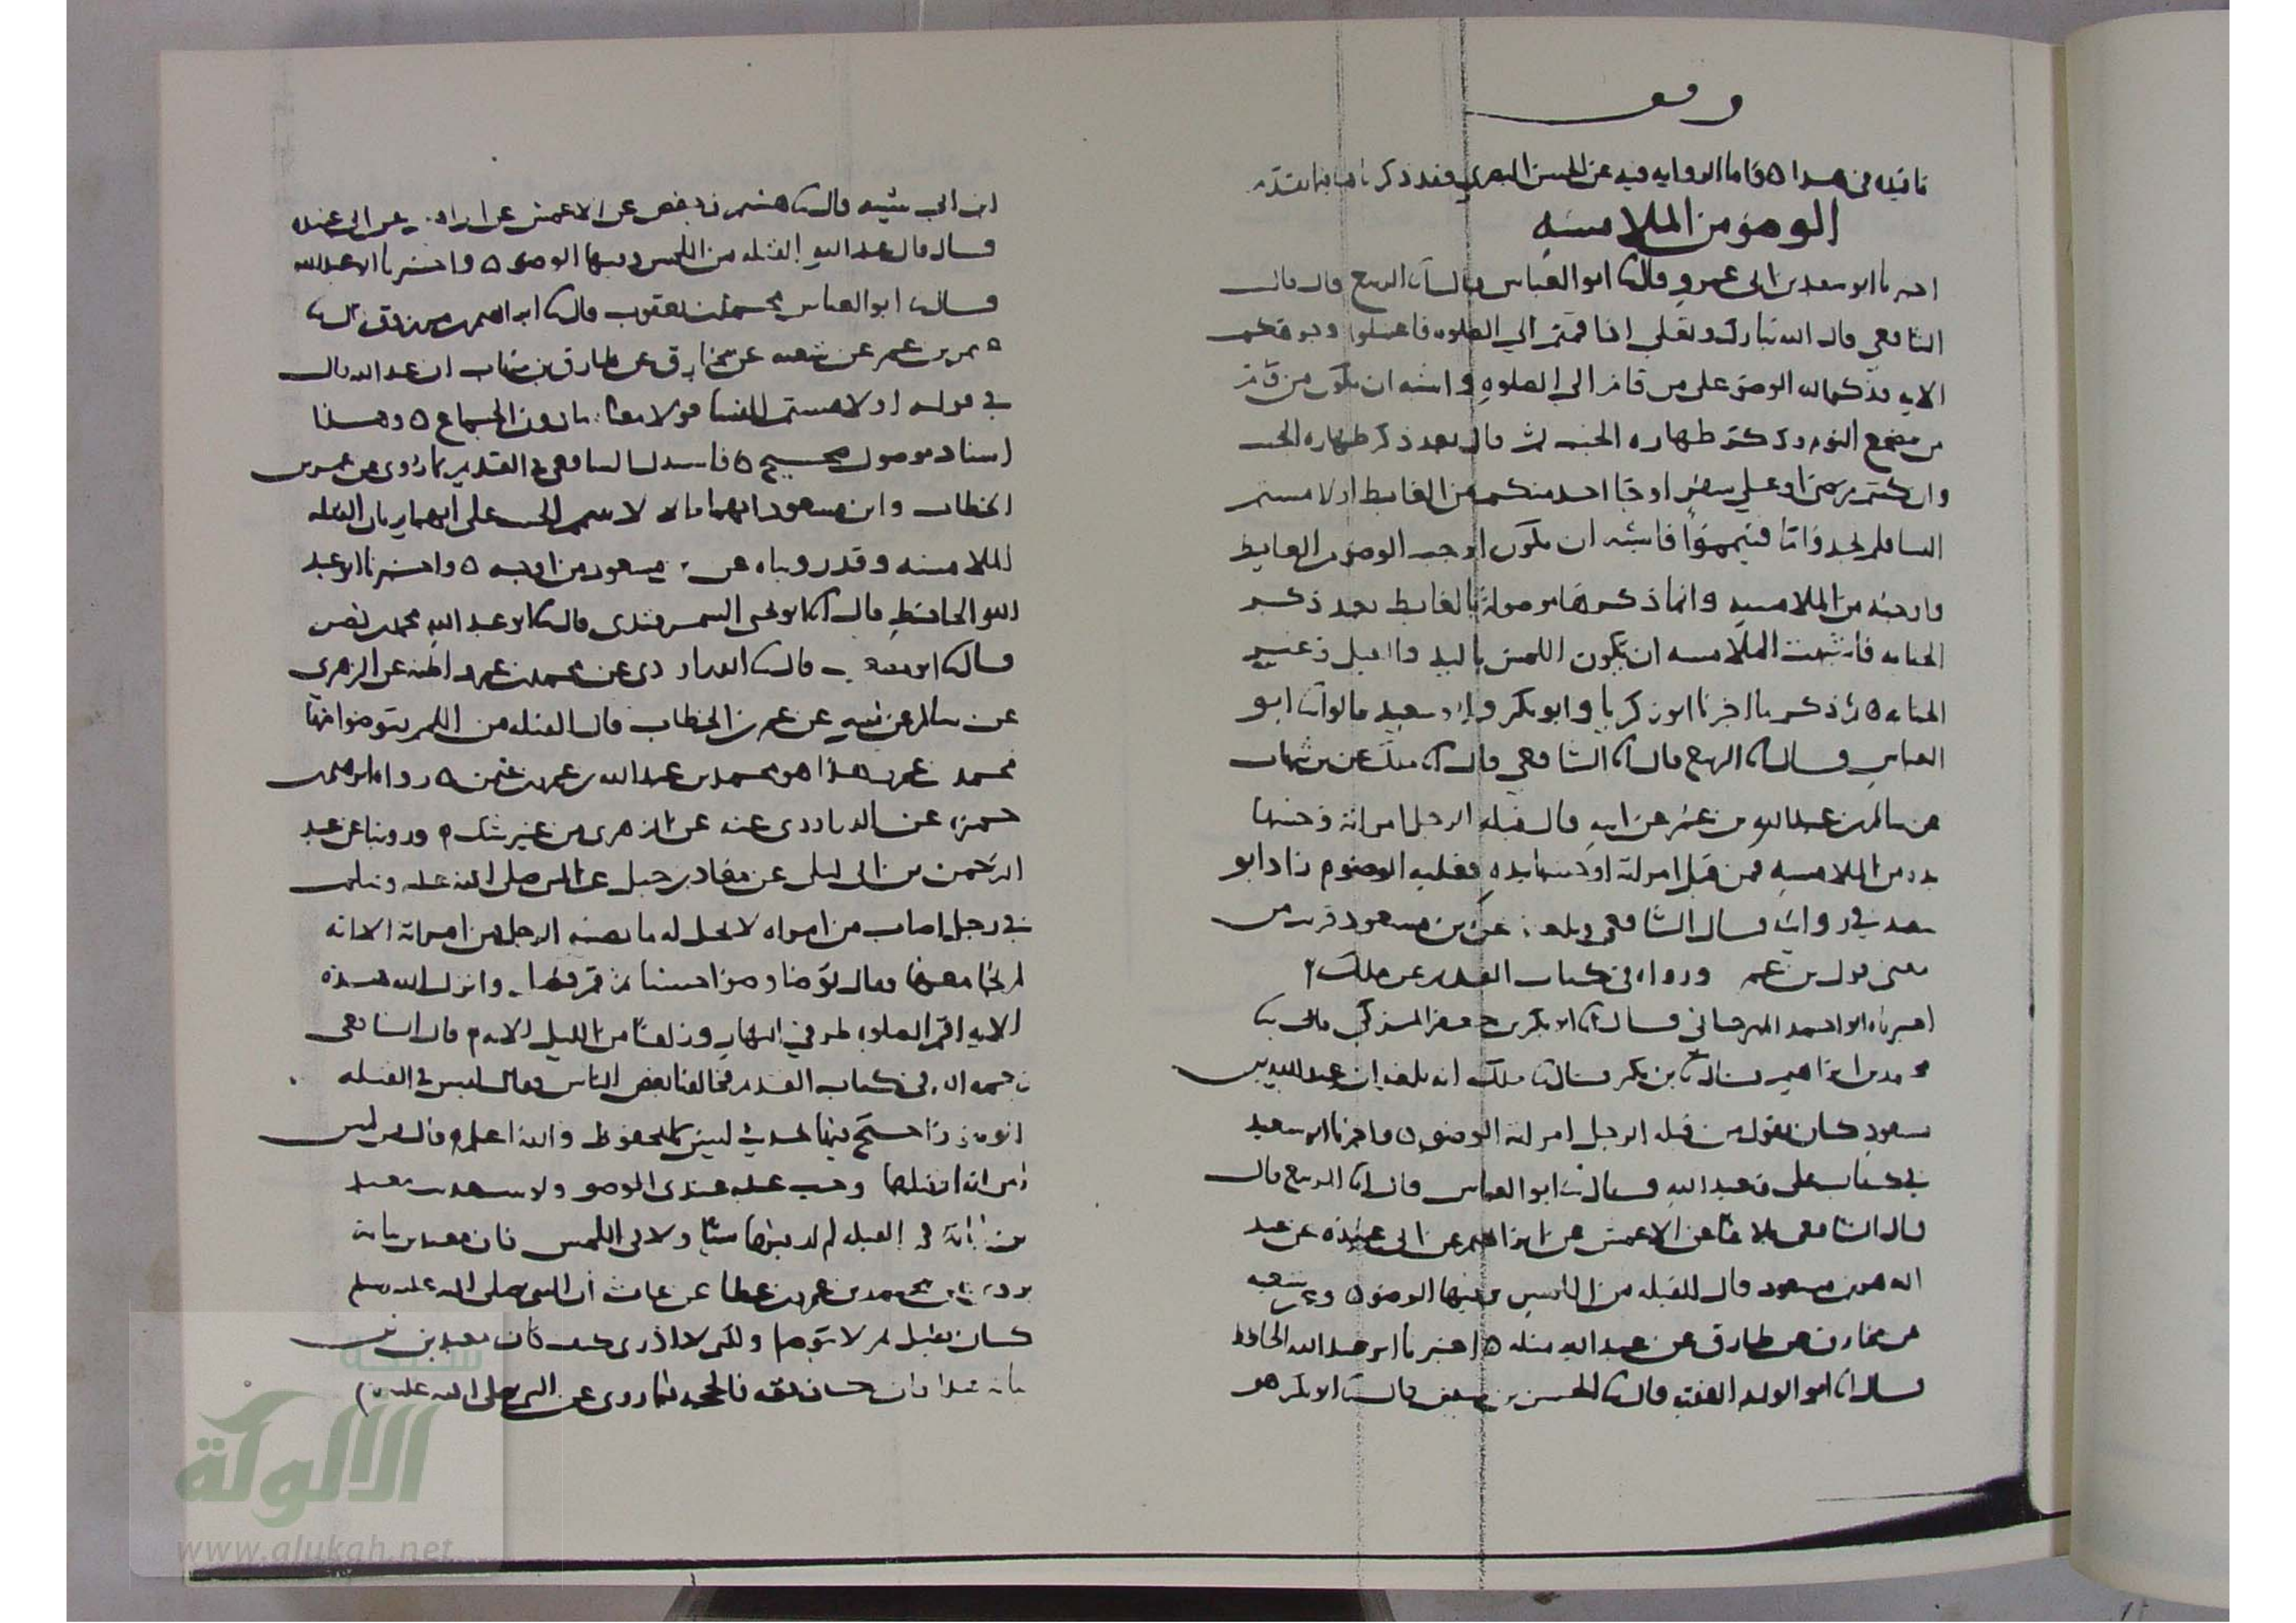 وقف
ما فيه في هذا ٥ فاما الرواية فيه عن الحسن البصري فقد ذكرناها فيما تقدم
الوضو من الملامسه
اخبرنا ابو سعيد بن ابي عمرو قال ثنا ابو العباس قال انا الربيع قال قال
الشافعي قال الله تبارك وتعلى اذا قمتم الي الصلوه فاغسلوا وجوهكم
الايه فذكر الله الوضو على من قام الي الصلوه واشبه ان يكون من قام
من مضجع النوم وذكر طهاره الجنب ثم قال بعد ذكر طهاره الجنب
وان كنتم مرضى او على سفر او جا احد منكم من الغايط او لامستم
النسا فلم تجدوا ما فتيمموا فاشبه ان يكون اوجب الوضو من الغايط
واوجبه من الملامسه وانما ذكرها موصولة بالغايط بعد ذكر
الجنابه فاشبهت الملامسه ان يكون اللمس باليد والقبل غير
الجنابه ٥ ثم ذكر ما اخبرنا ابو زكريا وابو بكر وابو سعيد قالوا ثنا ابو
العباس قال انا الربيع قال انا الشافعي قال انا ملك عن بن شهاب
عن سالم بن عبد الله بن عمر عن ابيه قال قبله الرجل امراته وجسها
بيده من الملامسه فمن قبل امراته او جسها بيده فعليه الوضو زاد ابو
سعيد في روايته قال الشافعي وبلغنا عن بن مسعود قريب من
معنى قول بن عمر ورواه في كتاب القديم عن ملك
اخبرناه ابو احمد المهرجاني قال انا ابو بكر بن جعفر المزكي قال ثنا
محمد بن ابراهيم قال ثنا بن بكير قال ثنا ملك انه بلغه ان عبد الله بن
مسعود كان يقول من قبله الرجل امراته الوضو ٥ واخبرنا ابو سعيد
في كتاب علي وعبد الله قال ثنا ابو العباس قال انا الربيع قال
قال الشافعي بلاغا عن الاعمش عن ابراهيم عن ابي عبيده عن عبد
الله بن مسعود قال القبله من اللمس وفيها الوضو ٥ وعن شعبه
عن مخارق عن طارق عن عبد الله مثله ٥ اخبرنا ابو عبد الله الحافظ
قال انا ابو الوليد الفقيه قال ثنا الحسن بن سفين قال ثنا ابو بكر هو
ابن ابي شيبه قال ثنا هشيم وحفص عن الاعمش عن ابراهيم عن ابي عبيده
قال قال عبد الله القبله من اللمس ومنها الوضو ٥ واخبرنا ابو عبد الله
قال ثنا ابو العباس محمد بن يعقوب قال ثنا ابراهيم بن مرزوق قال ثنا
عمر عن شعبه عن مخارق عن طارق بن شهاب ان عبد الله قال
في قوله او لامستم النسا قولا معناه ما دون الجماع ٥ وهذا
اسناد موصول صحيح ٥ فاستدل الشافعي في القديم بما روي عن عمر بن
الخطاب وابن مسعود انهما قالا لا يتيمم الجنب على انهما يريان القبله
الملامسه وقد رويناه عن بن مسعود من اوجه ٥ واخبرنا ابو عبد
الله الحافظ قال انا ابو يحيى السمرقندي قال ثنا ابو عبد الله محمد بن نصر
قال ثنا قال ثنا الدراوردي عن محمد بن عبد الله عن الزهري
عن سالم عن ابيه عن عمر بن الخطاب قال القبله من اللمم يتوضوا منها
محمد هذا هو محمد بن عبد الله بن عمرو بن عثمن ٥ رواه ابراهيم بن
حمزه عن الدراوردي عنه عن الزهري من غير شك ٥ وروينا عن عبد
الرحمن بن ابي ليلى عن معاذ بن جبل عن النبي صلى الله عليه وسلم
في رجل اصاب من امراه لا تحل له ما يصيبه الرجل من امراته الا انه
لم يجامعها فقال توضا وضوا حسنا ثم قم فصل وانزل الله هذه
الايه اقم الصلوه طرفي النهار وزلفا من الليل الايه ٥ قال الشافعي
رحمه الله في كتاب القديم فخالفنا بعض الناس فقال ليس في القبله
الوضو واحتج فيها بحديث ليس بالمحفوظ والله اعلم وقال من لمس
امراته او قبلها وجب عليه عندي الوضو ولا معبد
بن نباته في القبله لم ار بها شيا ولا في اللمس فان معبد بن نباته
يروي عن محمد بن عمرو بن عطا عن عايشه ان النبي صلى الله عليه وسلم
كان يقبل ثم لا يتوضا ولكن لا ادري كيف كان معبد بن نباته
هذا فان كان ثقه فالحجه فيما روى عن النبي صلى الله عليه
شبكة
الألوكة
www.alukah.net